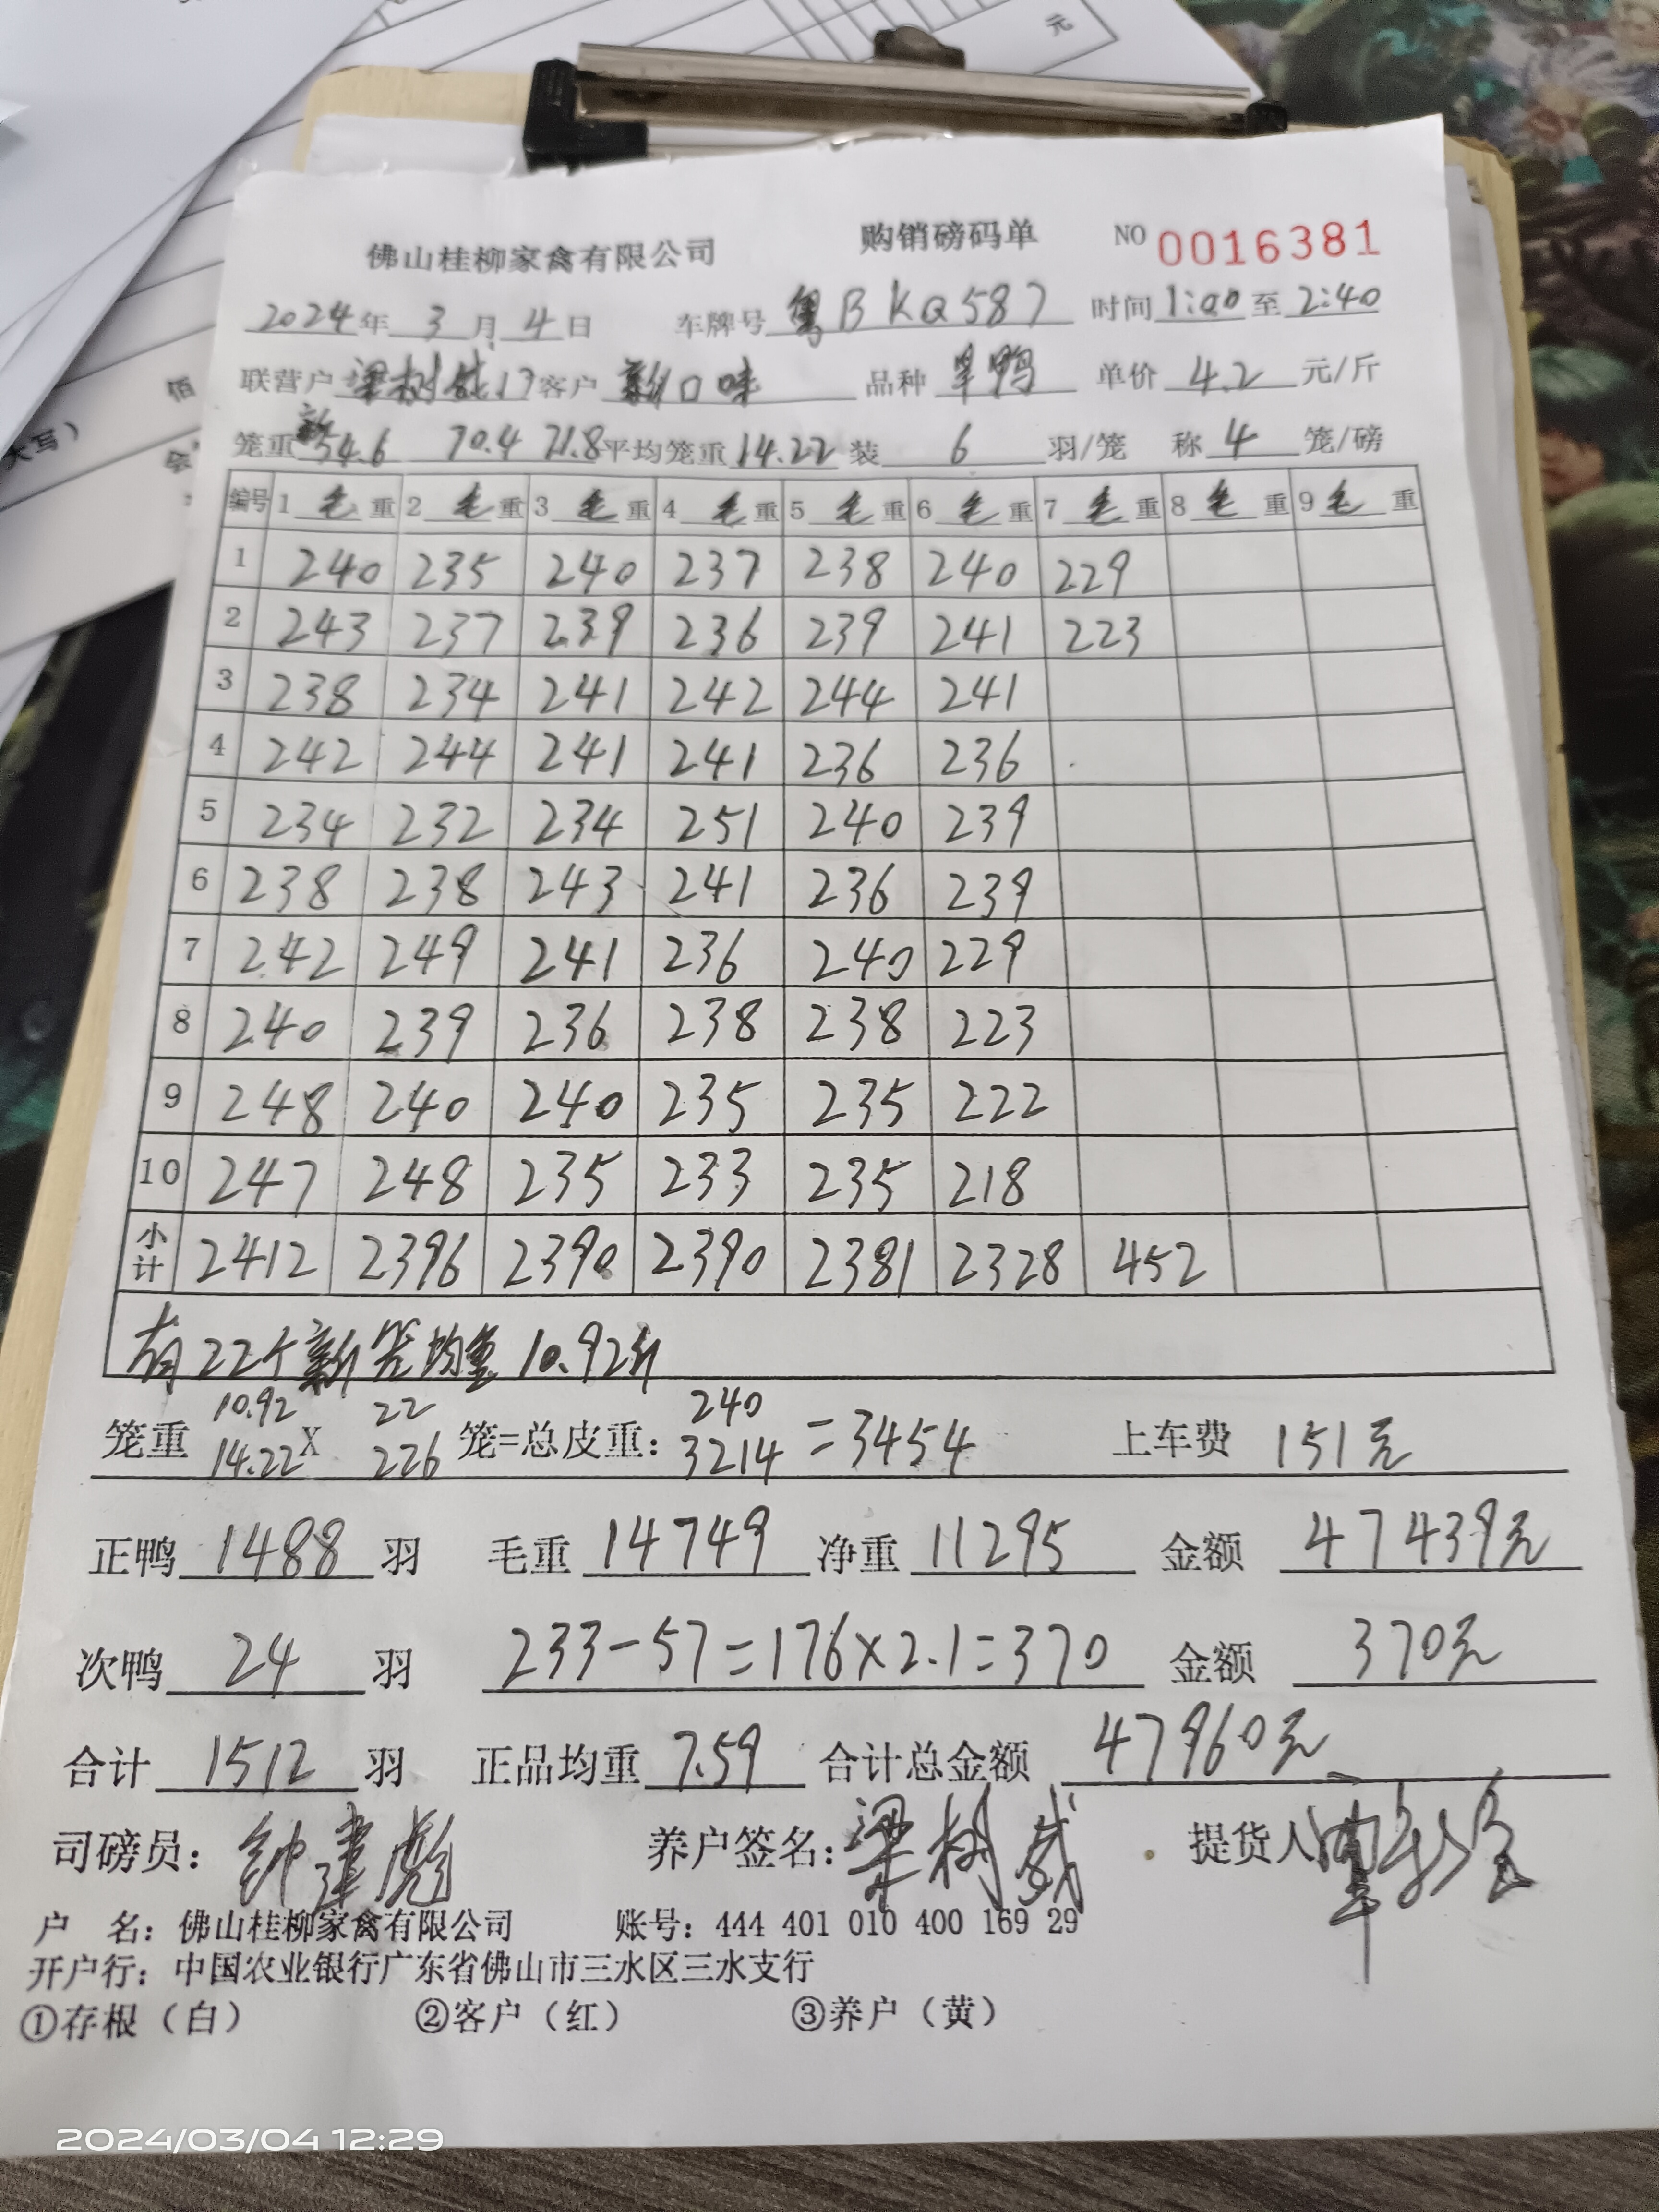 元
佰
大写）
会
佛山桂柳家禽有限公司 购销磅码单 NO 0016381
2024年 3月 4日 车牌号 粤B KQ587 时间 1:00 至 2:40
联营户 梁树威17 客户 新口味 品种 旱鸭 单价 4.2 元/斤
笼重 新54.6 70.4 71.8 平均笼重 14.22 装 6 羽/笼 称 4 笼/磅
编号 1 毛重 2 毛重 3 毛重 4 毛重 5 毛重 6 毛重 7 毛重 8 毛重 9 毛重
1 240 235 240 237 238 240 229
2 243 237 239 236 239 241 223
3 238 234 241 242 244 241
4 242 244 241 241 236 236
5 234 232 234 251 240 239
6 238 238 243 241 236 239
7 242 249 241 236 240 229
8 240 239 236 238 238 223
9 248 240 240 235 235 222
10 247 248 235 233 235 218
小计 2412 2396 2390 2390 2381 2328 452
有22个新笼均重10.92斤
10.92 22 240
笼重 14.22 X 226 笼=总皮重：3214 =3454 上车费 151元
正鸭 1488 羽 毛重 14749 净重 11295 金额 47439元
次鸭 24 羽 233-57=176×2.1=370 金额 370元
合计 1512 羽 正品均重 7.59 合计总金额 47960元
司磅员：钟建彪 养户签名：梁树威 提货人
户 名：佛山桂柳家禽有限公司 账号：444 401 010 400 169 29
开户行：中国农业银行广东省佛山市三水区三水支行
①存根（白） ②客户（红） ③养户（黄）
2024/03/04 12:29